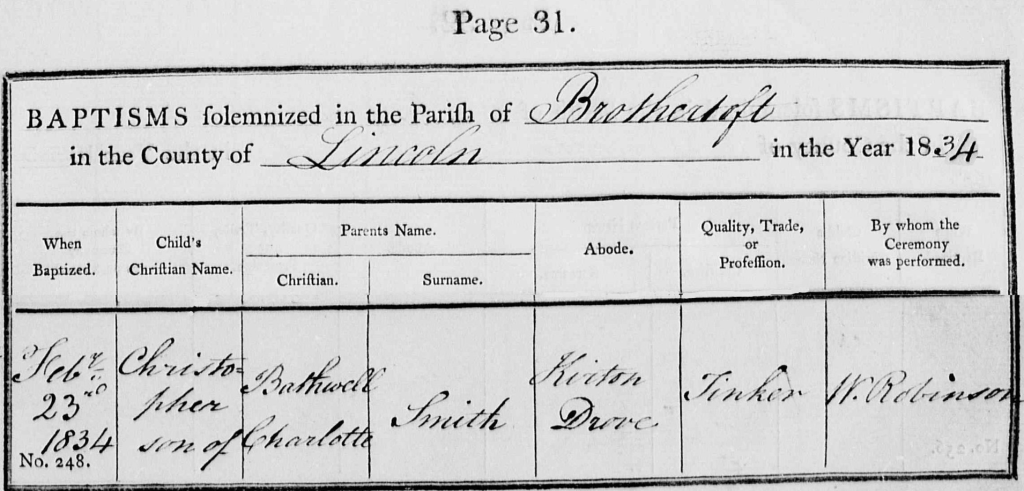 Page 31.
BAPTISMS ſolemnized in the Pariſh of Brothertoft
in the County of Lincoln in the Year 1834
When Baptized.
Child's Chriſtian Name.
Parents Name.
Chriſtian.
Surname.
Abode.
Quality, Trade, or Profeſſion.
By whom the Ceremony was performed.
Feby
23rd
1834
No. 248.
Christo-
pher
son of
Bathwell
Charlotte
Smith
Kirton
Drove
Tinker
W. Robinson